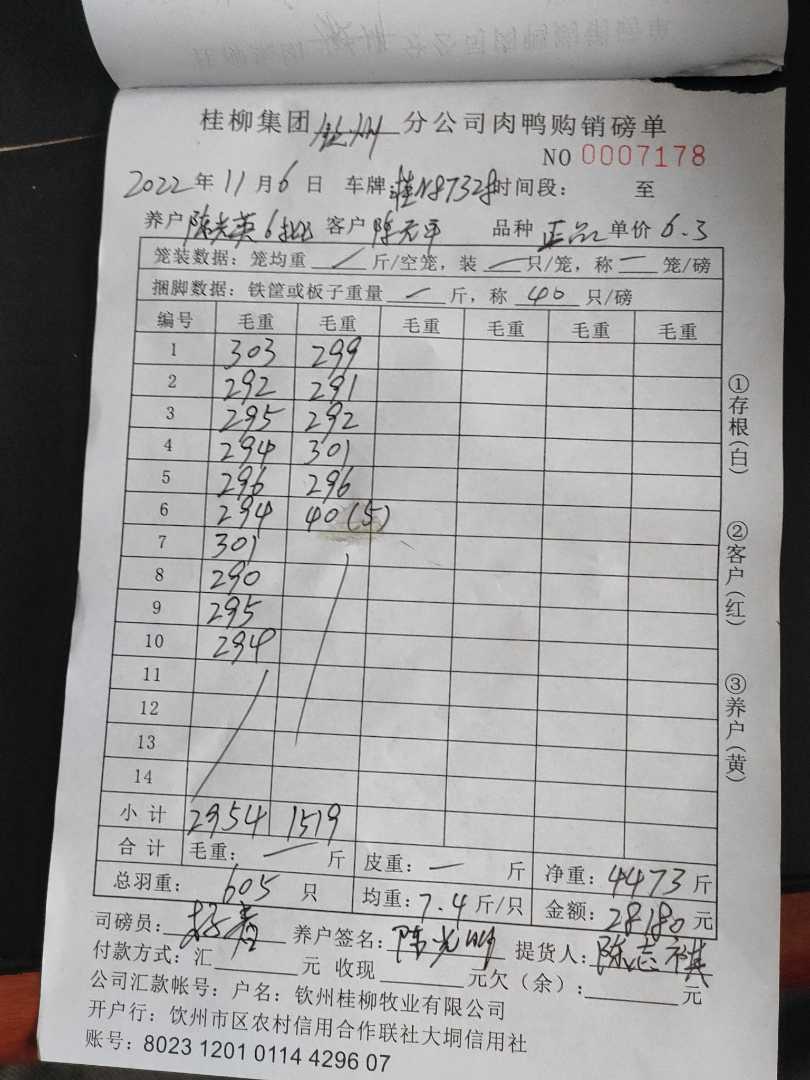 桂柳集团钦州分公司肉鸭购销磅单
NO 0007178
2022年11月6日 车牌:桂N87328时间段: 至
养户陈光英6批 客户陈元平 品种 正品 单价6.3
笼装数据:笼均重 / 斤/空笼,装 一 只/笼,称 一 笼/磅
捆脚数据:铁筐或板子重量 一 斤,称 40 只/磅
编号 毛重 毛重 毛重 毛重 毛重 毛重
1 303 299
2 292 291
3 295 292
4 294 301
5 296 296
6 294 40(5)
7 301
8 290
9 295
10 294
11
12
13
14
小计 2954 1519
合计 毛重: 一 斤 皮重: 一 斤 净重:4473斤
总羽重: 605 只 均重:7.4斤/只 金额:28180元
司磅员: 养户签名:陈光 提货人:陈志祺
付款方式:汇 元 收现 元欠(余): 元
公司汇款帐号:户名:钦州桂柳牧业有限公司
开户行:钦州市区农村信用合作联社大垌信用社
账号:8023 1201 0114 4296 07
①存根(白)
②客户(红)
③养户(黄)